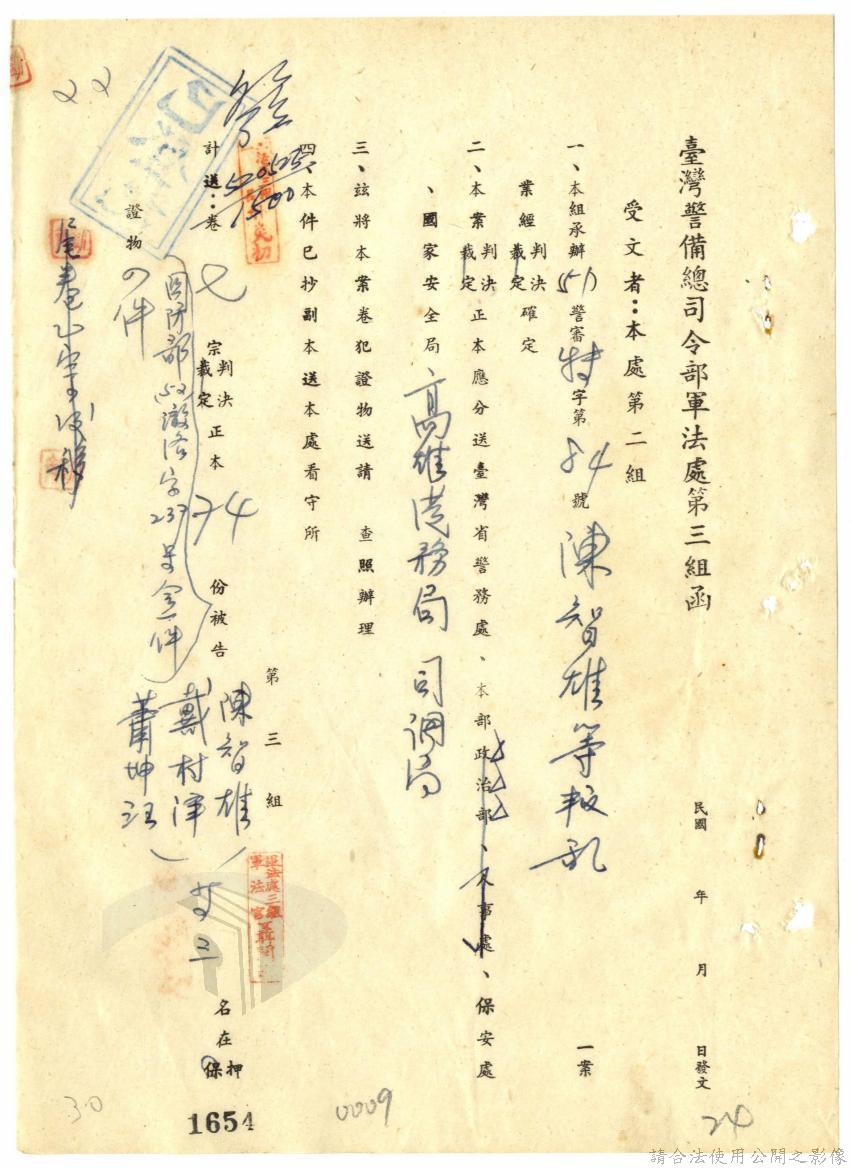 臺灣警備總司令部軍法處第三組函
民國 年 月 日發文
24
受文者：本處第二組
一、本組承辦(51)警審特字第84號陳智雄等叛亂 一案
業經判決裁定確定
二、本案判決裁定正本應分送臺灣省警務處、本部政治部、人事處、保安處
、國家安全局 高雄港務局 司調局
三、茲將本案卷犯證物送請 查照辦理
四、本件已抄副本送本處看守所
第三組
計送：卷七宗判決裁定正本 份被告陳智雄 戴村澤 蕭坤旺 等三 名在押保
證物 件
國防部 字237号 件
1654
0009
30
請合法使用公開之影像